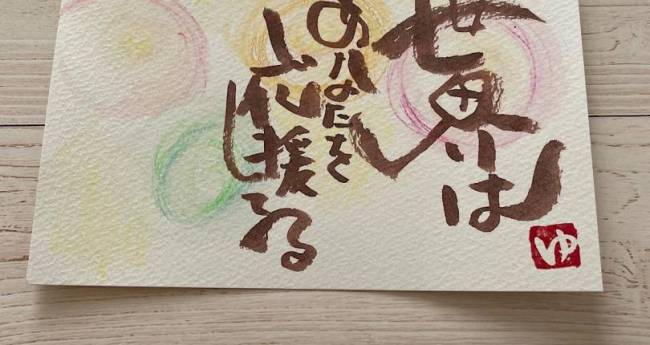 世界は
あなたを
応援する
ゆ